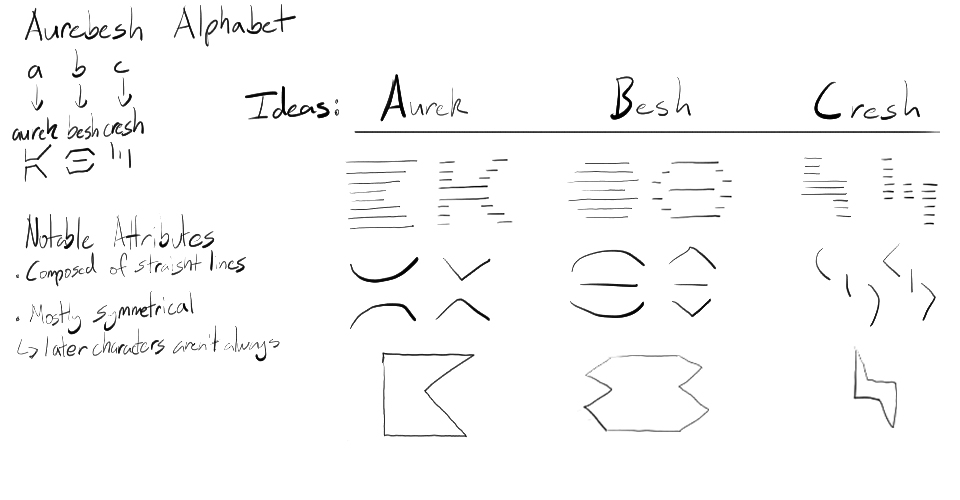 Aurebesh Alphabet
a b c
aurek besh cresh
Notable Attributes
• Composed of straight lines
• Mostly symmetrical
↳ later charactors aren't always
Ideas: Aurek Besh Cresh